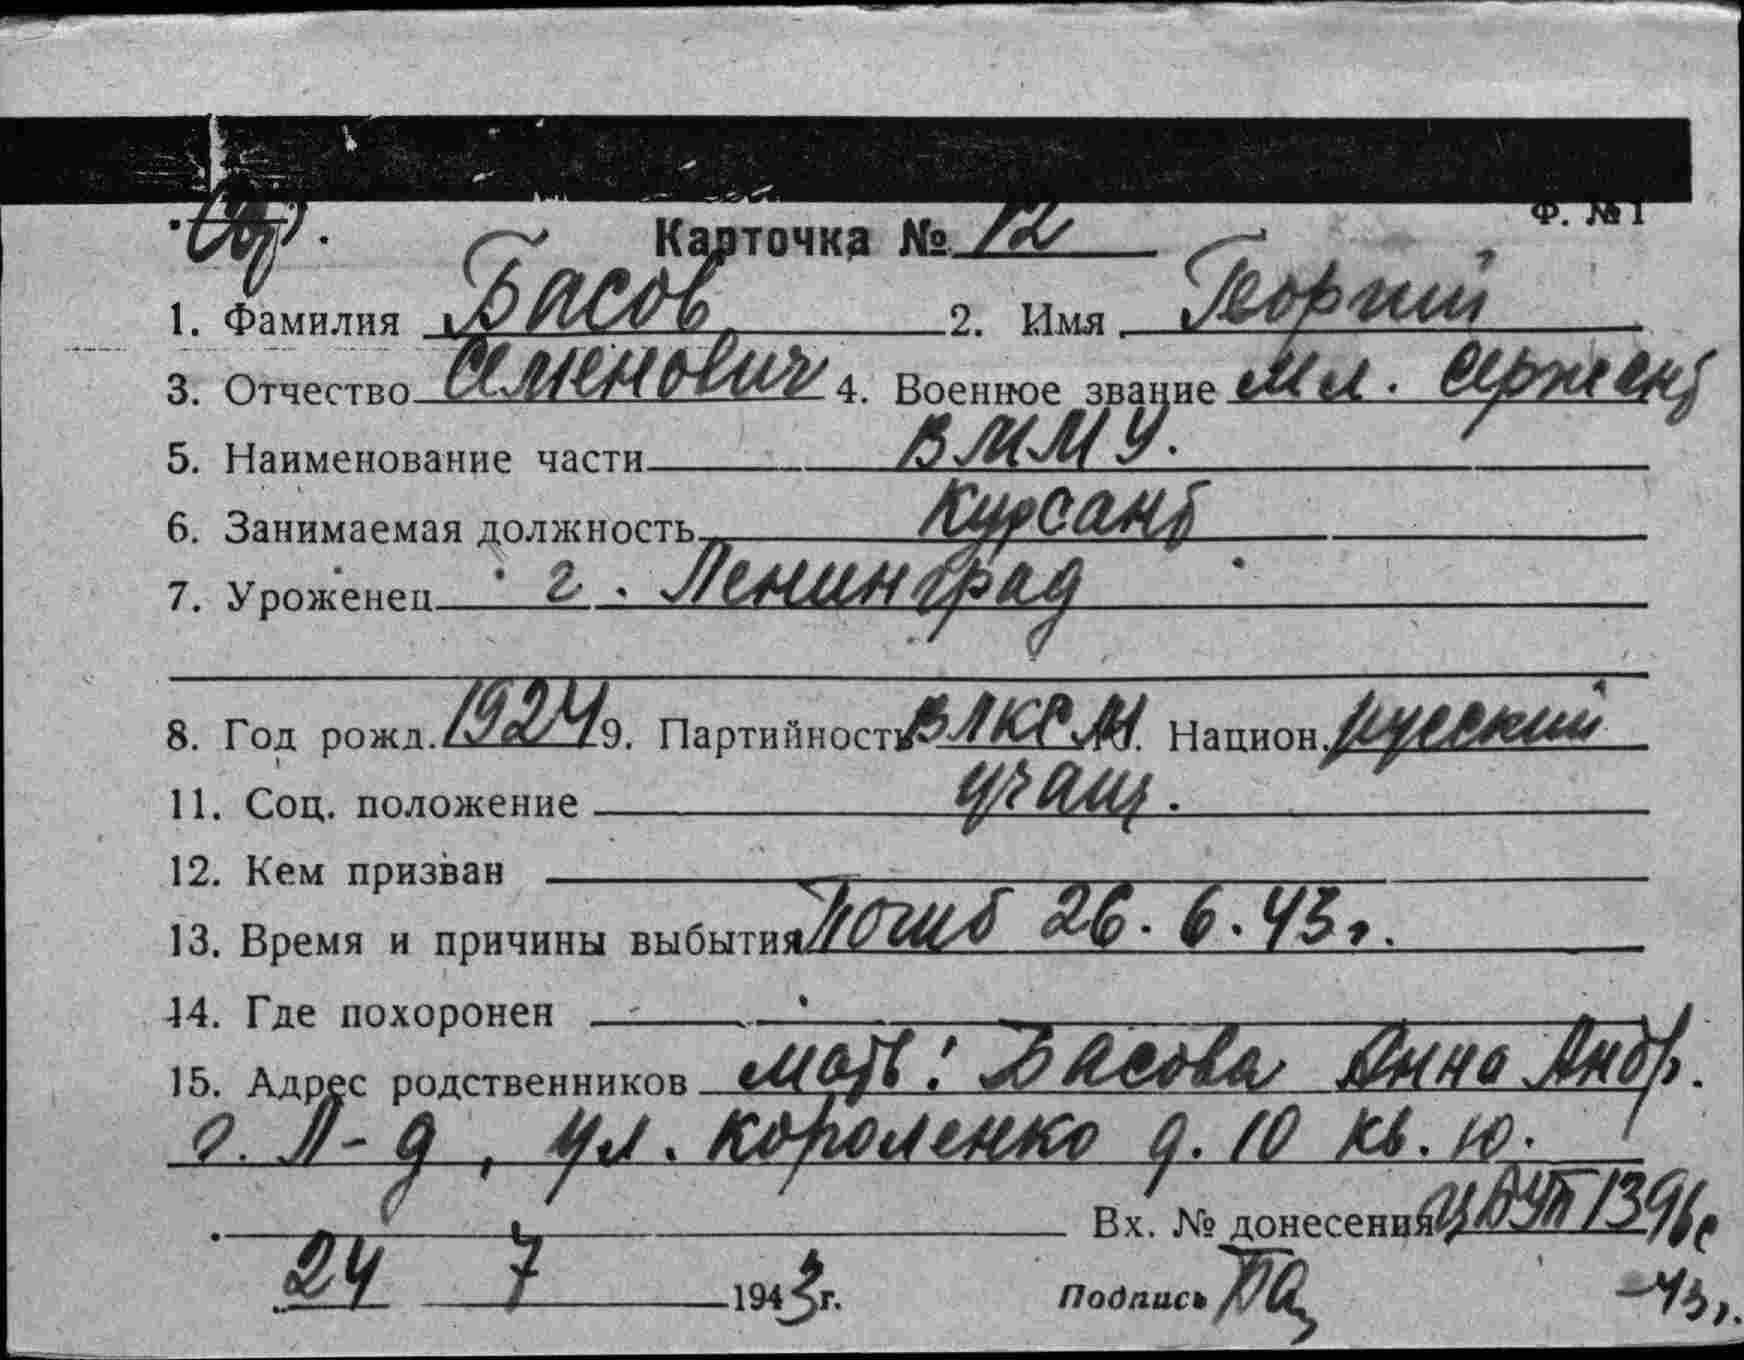 Ф. № 1
Карточка № 12
1. Фамилия Басов 2. Имя Георгий
3. Отчество Семенович 4. Военное звание мл. сержант
5. Наименование части ВММУ.
6. Занимаемая должность курсант
7. Уроженец г. Ленинград
8. Год рожд. 1924 9. Партийность ВЛКСМ. Национ. русский
11. Соц. положение учащ.
12. Кем призван
13. Время и причины выбытия Погиб 26.6.43г.
14. Где похоронен
15. Адрес родственников мать: Басова Анна Андр.
г. Л-д, ул. Короленко д. 10 кв. 10.
Вх. № донесения 1396с
24 7 1943 г. Подпись -43г.